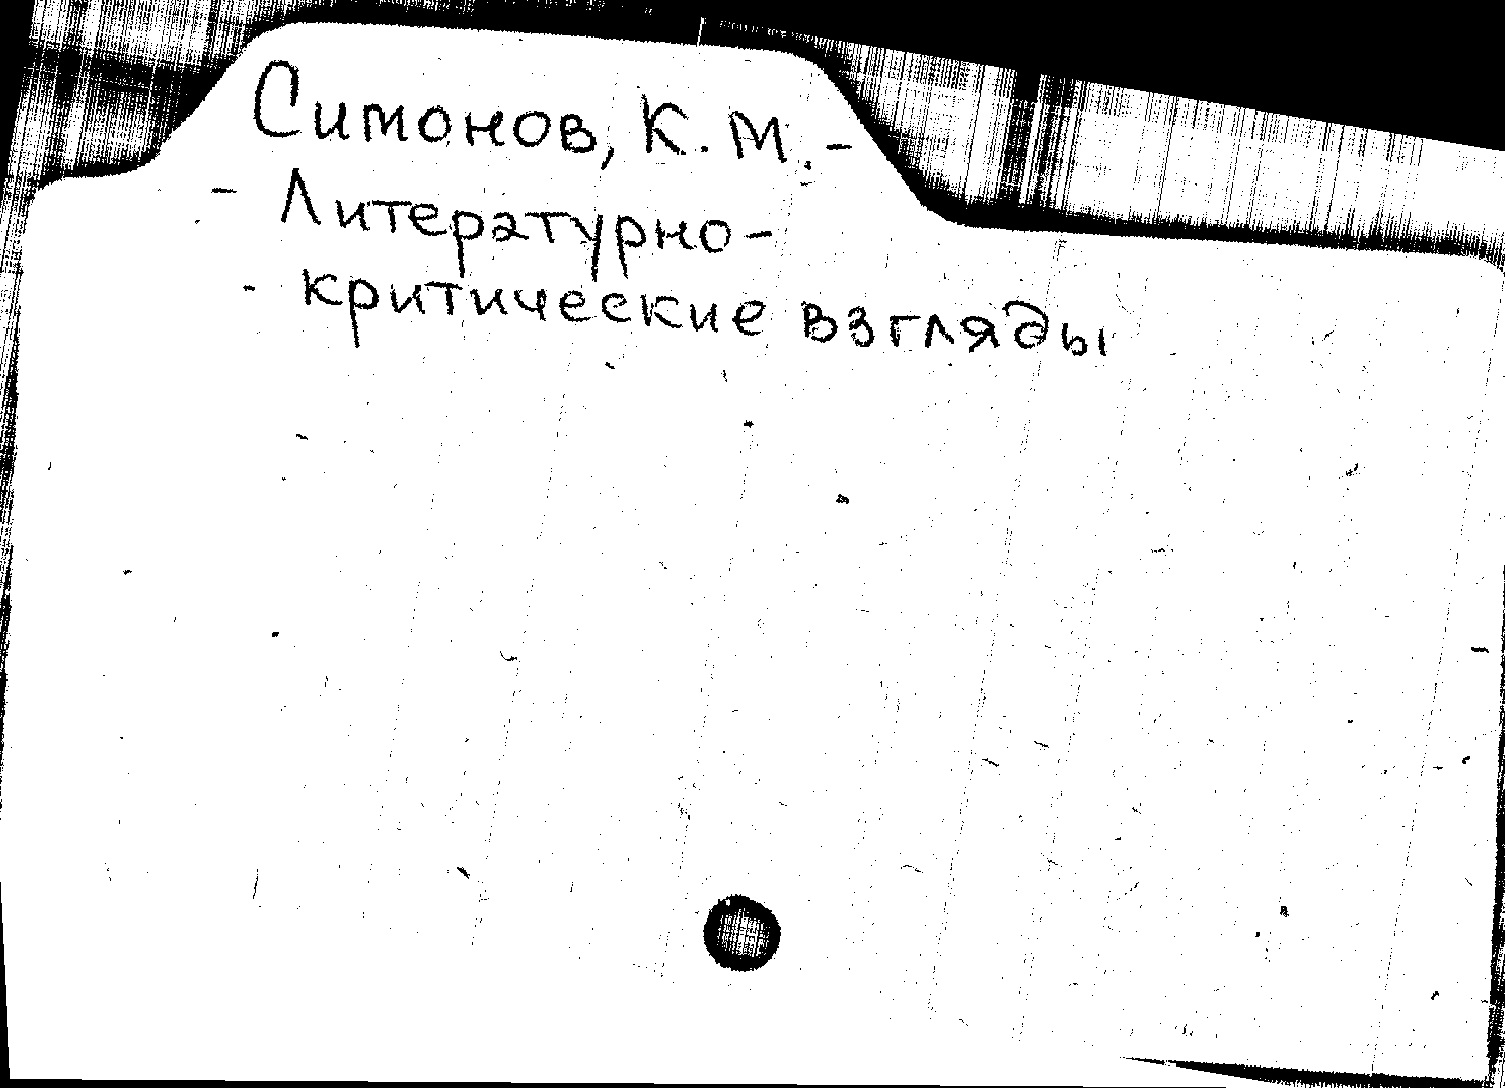 Симонов, К. М. -
- Литературно-
- критические взгляды